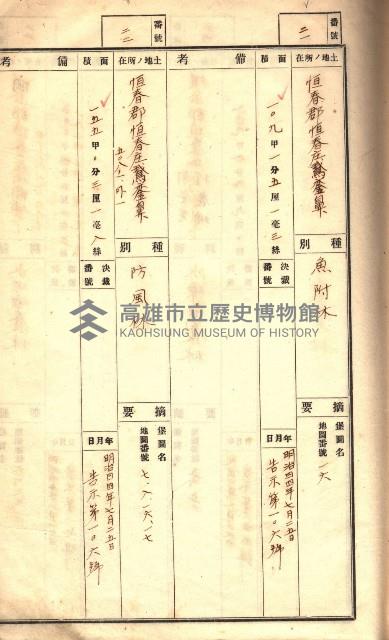 番號 二一
土地ノ所在
恒春郡恒春庄鵞鑾鼻
種別
魚附林
摘要
堡圖名
地圖番號 一六
面積
一〇九甲一分五厘一毫三絲
決裁番號
年月日
明治四四年七月二五日
告示第一〇六號
備考
番號 二二
土地ノ所在
恒春郡恒春庄鵞鑾鼻
種別
防風林
摘要
堡圖名
地圖番號 七、六、一六、一七
面積
一五五甲〇分三厘一毫八絲
決裁番號
年月日
明治四四年七月二五日
告示第一〇六號
備考
高雄市立歷史博物館
KAOHSIUNG MUSEUM OF HISTORY